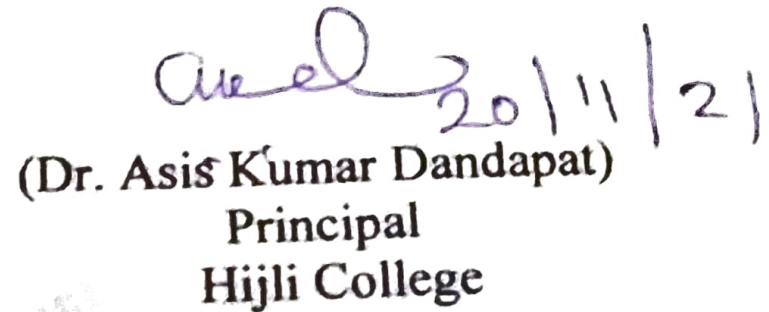 20/11/21
(Dr. Asis Kumar Dandapat)
Principal
Hijli College